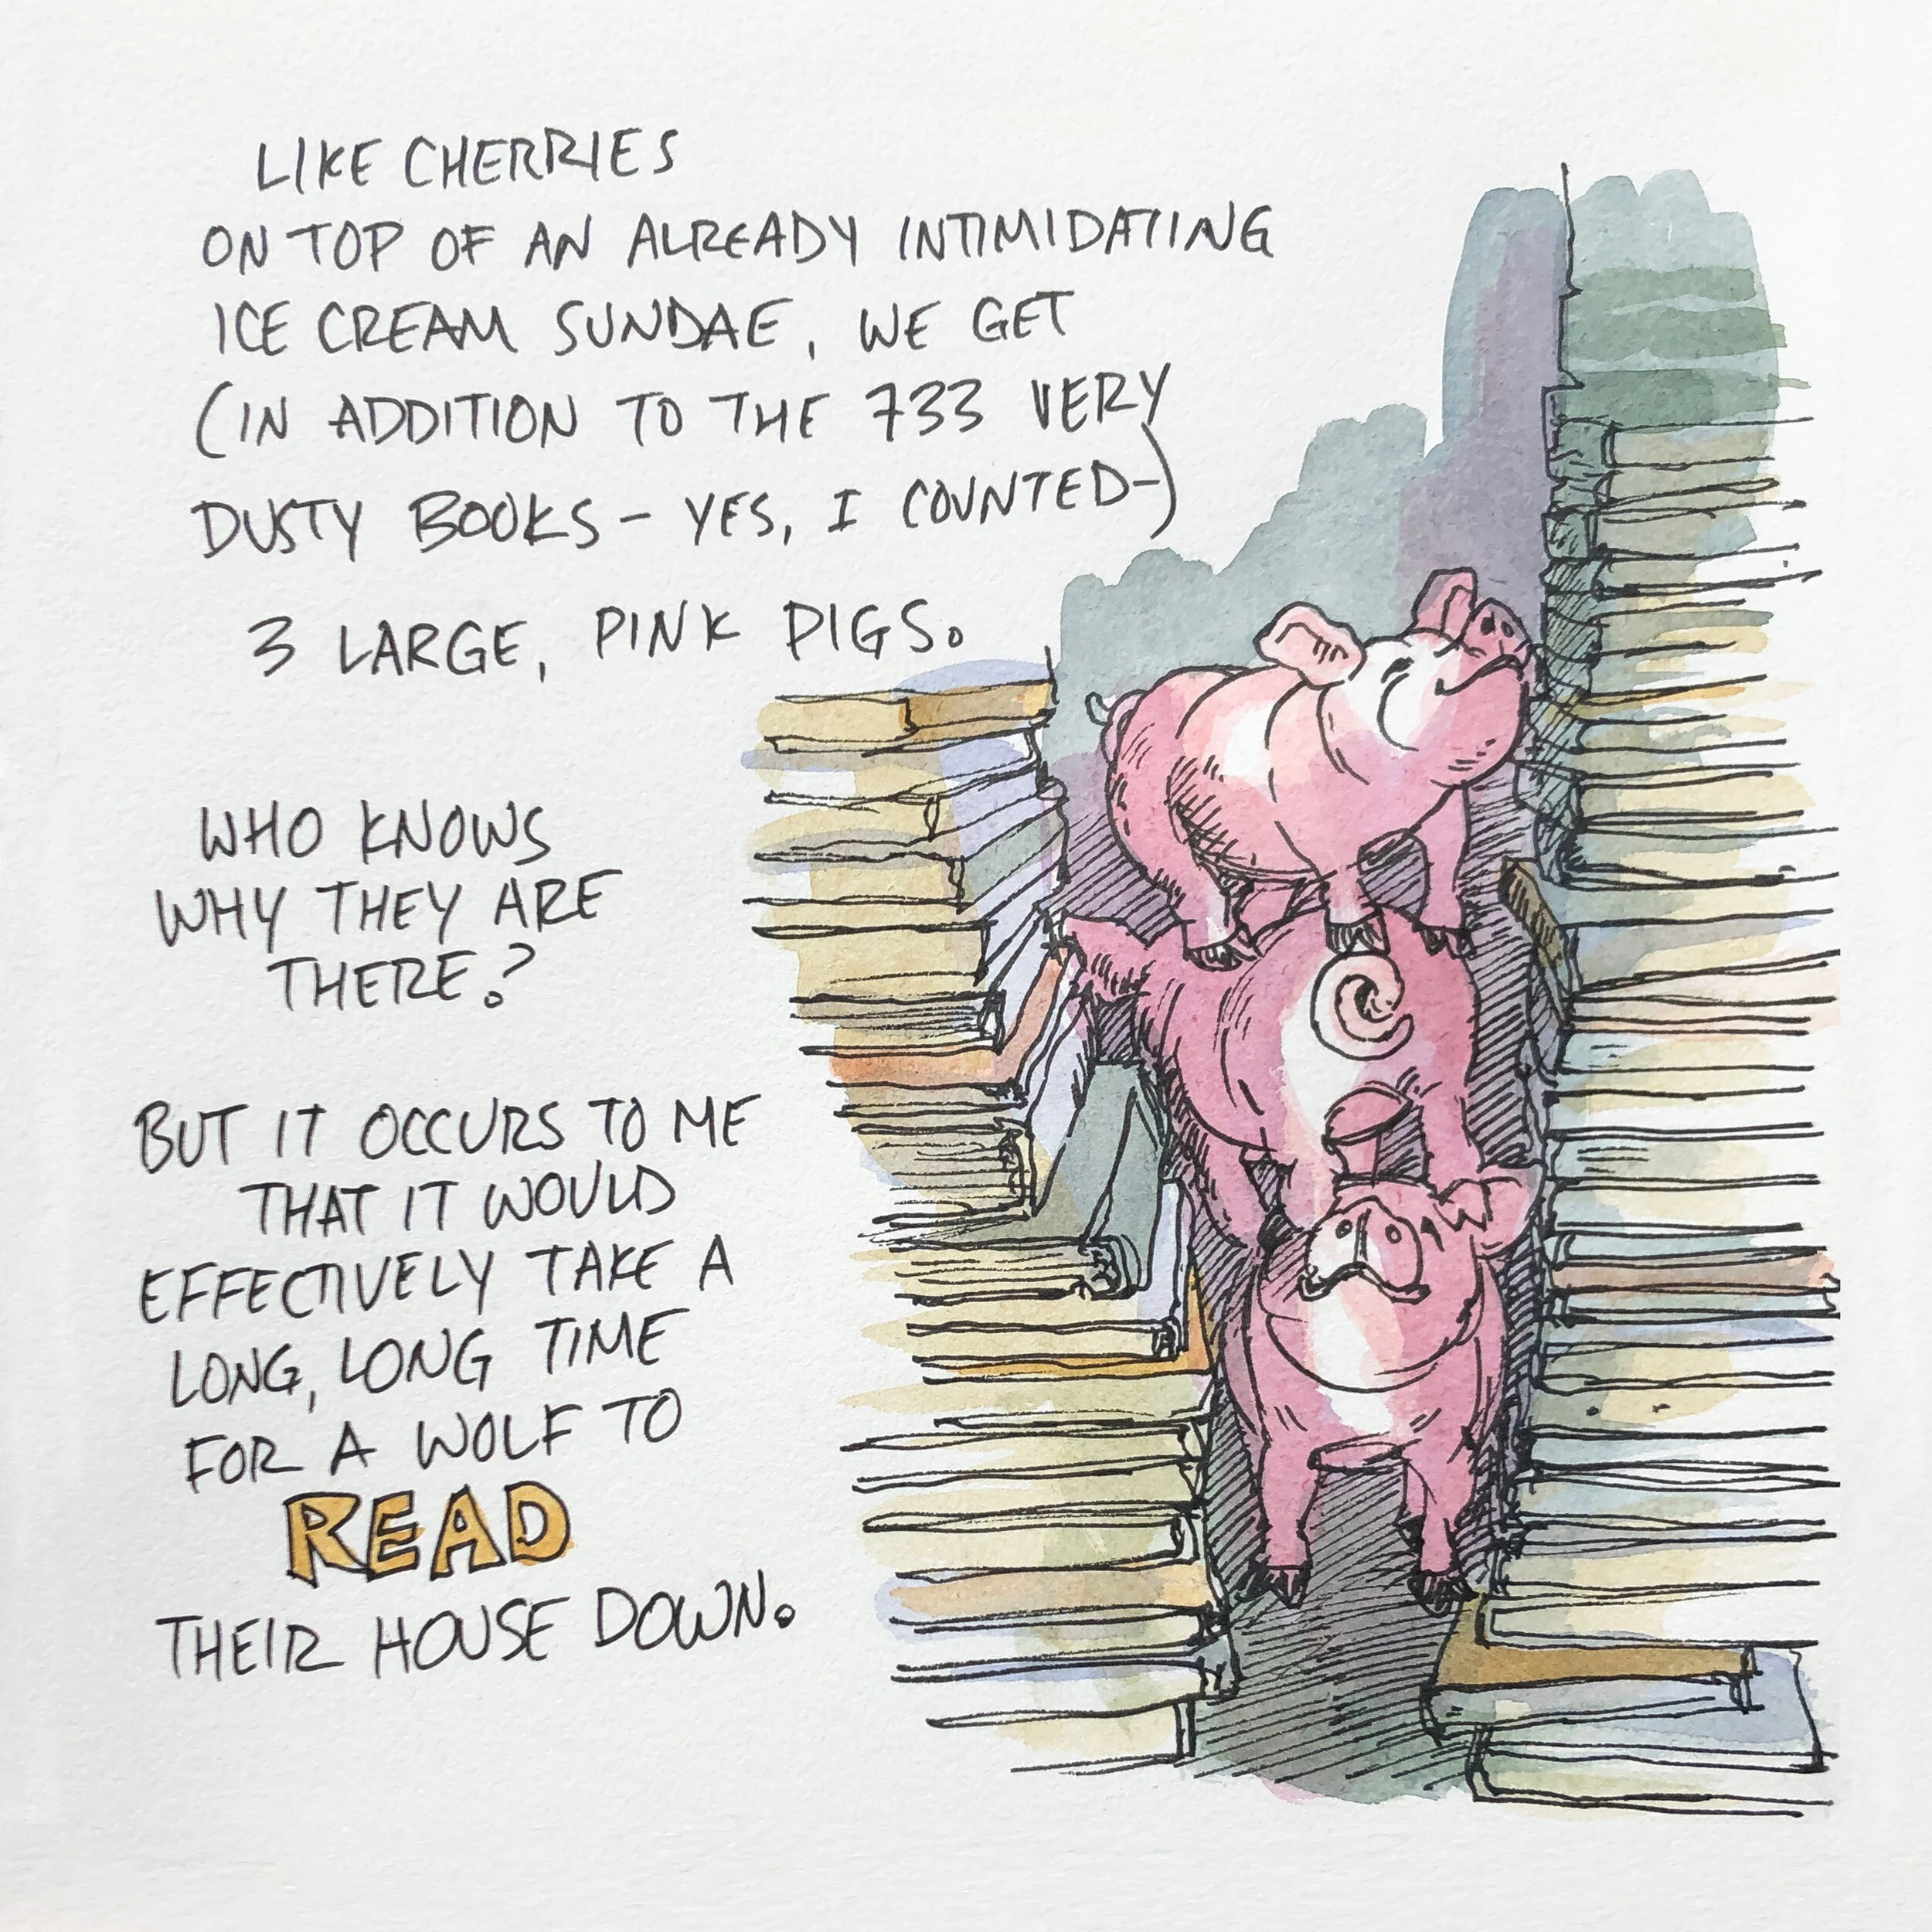 LIKE CHERRIES
ON TOP OF AN ALREADY INTIMIDATING
ICE CREAM SUNDAE, WE GET
(IN ADDITION TO THE 733 VERY
DUSTY BOOKS - YES, I COUNTED-)
3 LARGE, PINK PIGS.
WHO KNOWS
WHY THEY ARE
THERE?
BUT IT OCCURS TO ME
THAT IT WOULD
EFFECTIVELY TAKE A
LONG, LONG TIME
FOR A WOLF TO
READ
THEIR HOUSE DOWN.